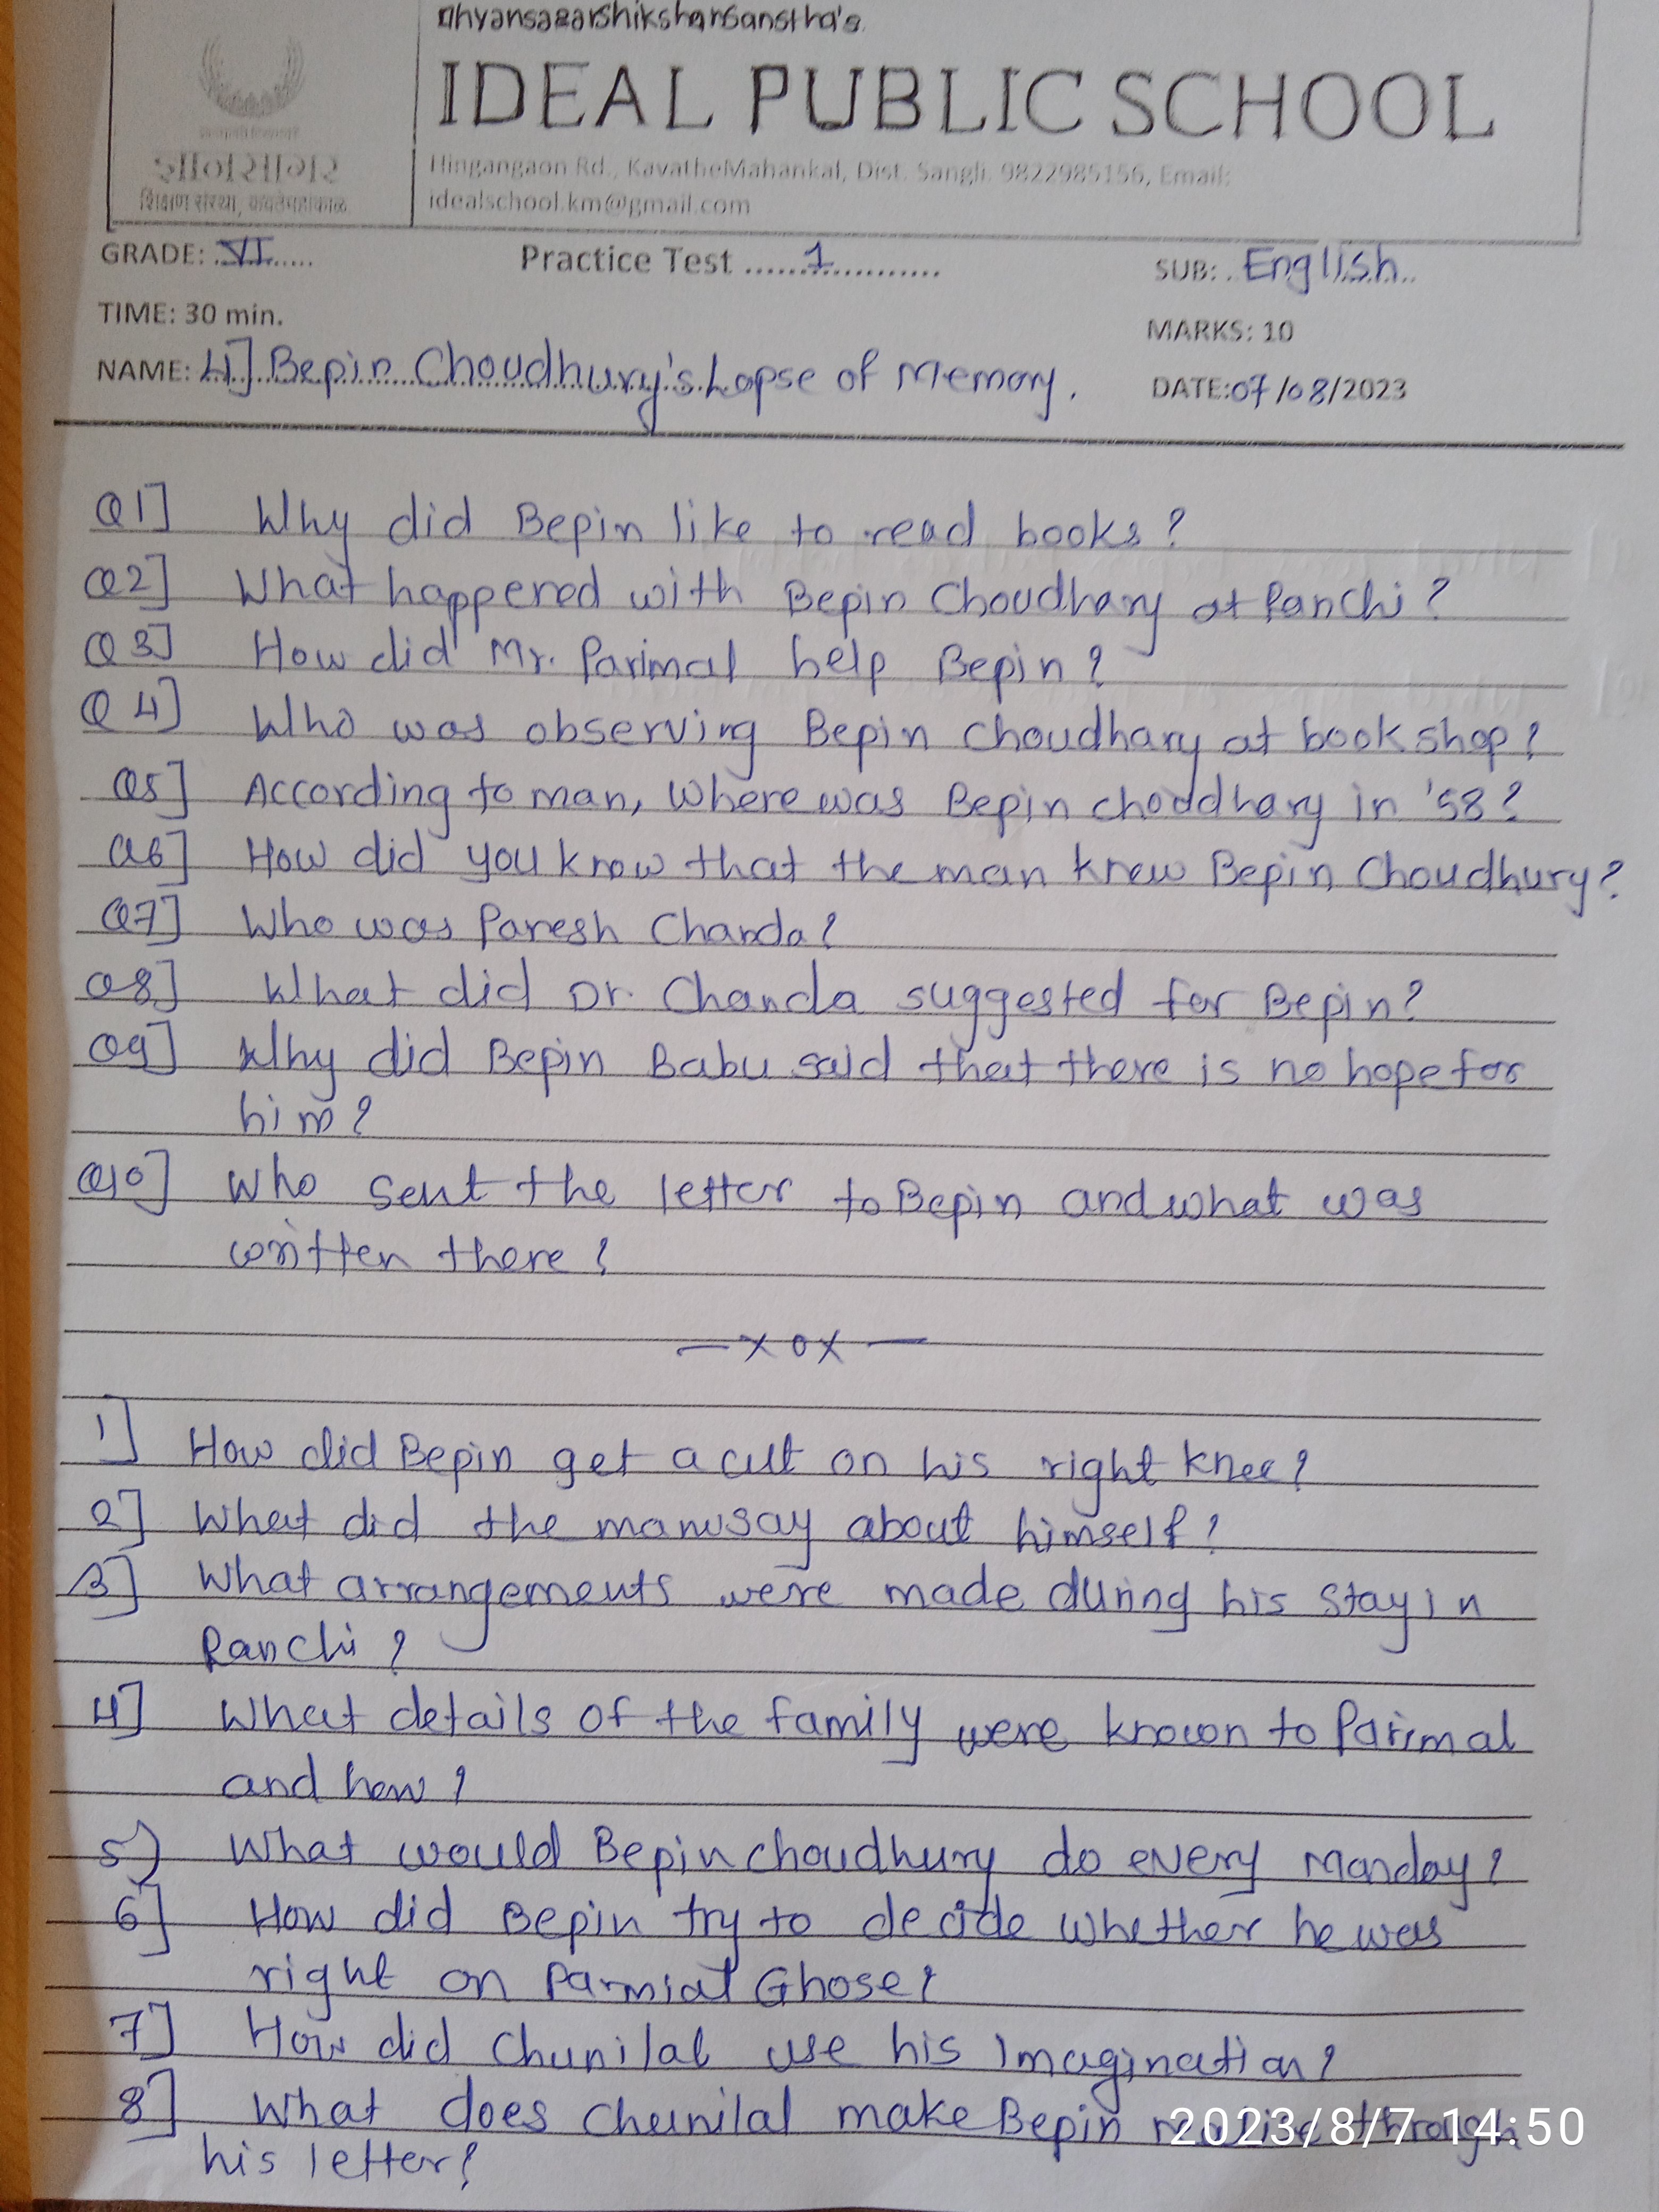 DhyansagarShikshanSanstha's
IDEAL PUBLIC SCHOOL
Hingangaon Rd., KavatheMahankal, Dist. Sangli. 9822985156, Email:
idealschool.km@gmail.com
शिक्षण संस्था, कवठेमहांकाळ
GRADE: VI Practice Test 1 SUB: English
TIME: 30 min. MARKS: 10
NAME: 4] Bepin Choudhury's Lapse of Memory. DATE:07/08/2023
Q1] Why did Bepin like to read books?
Q2] What happened with Bepin Choudhary at Ranchi?
Q3] How did Mr. Parimal help Bepin?
Q4] Who was observing Bepin Choudhary at book shop?
Q5] According to man, Where was Bepin choddhary in '58?
Q6] How did you know that the man knew Bepin Choudhury?
Q7] Who was Paresh Chanda?
Q8] What did Dr. Chanda suggested for Bepin?
Q9] Why did Bepin Babu said that there is no hope for
him?
Q10] Who sent the letter to Bepin and what was
written there?
— x o x —
1] How did Bepin get a cut on his right knee?
2] What did the man say about himself?
3] What arrangements were made during his stay in
Ranchi?
4] What details of the family were known to Parimal
and how?
5) What would Bepin choudhury do every Monday?
6] How did Bepin try to decide whether he was
right on Parmial Ghose?
7] How did Chunilal use his Imagination?
8] What does Chunilal make Bepin through
his letter?
2023/8/7 14:50